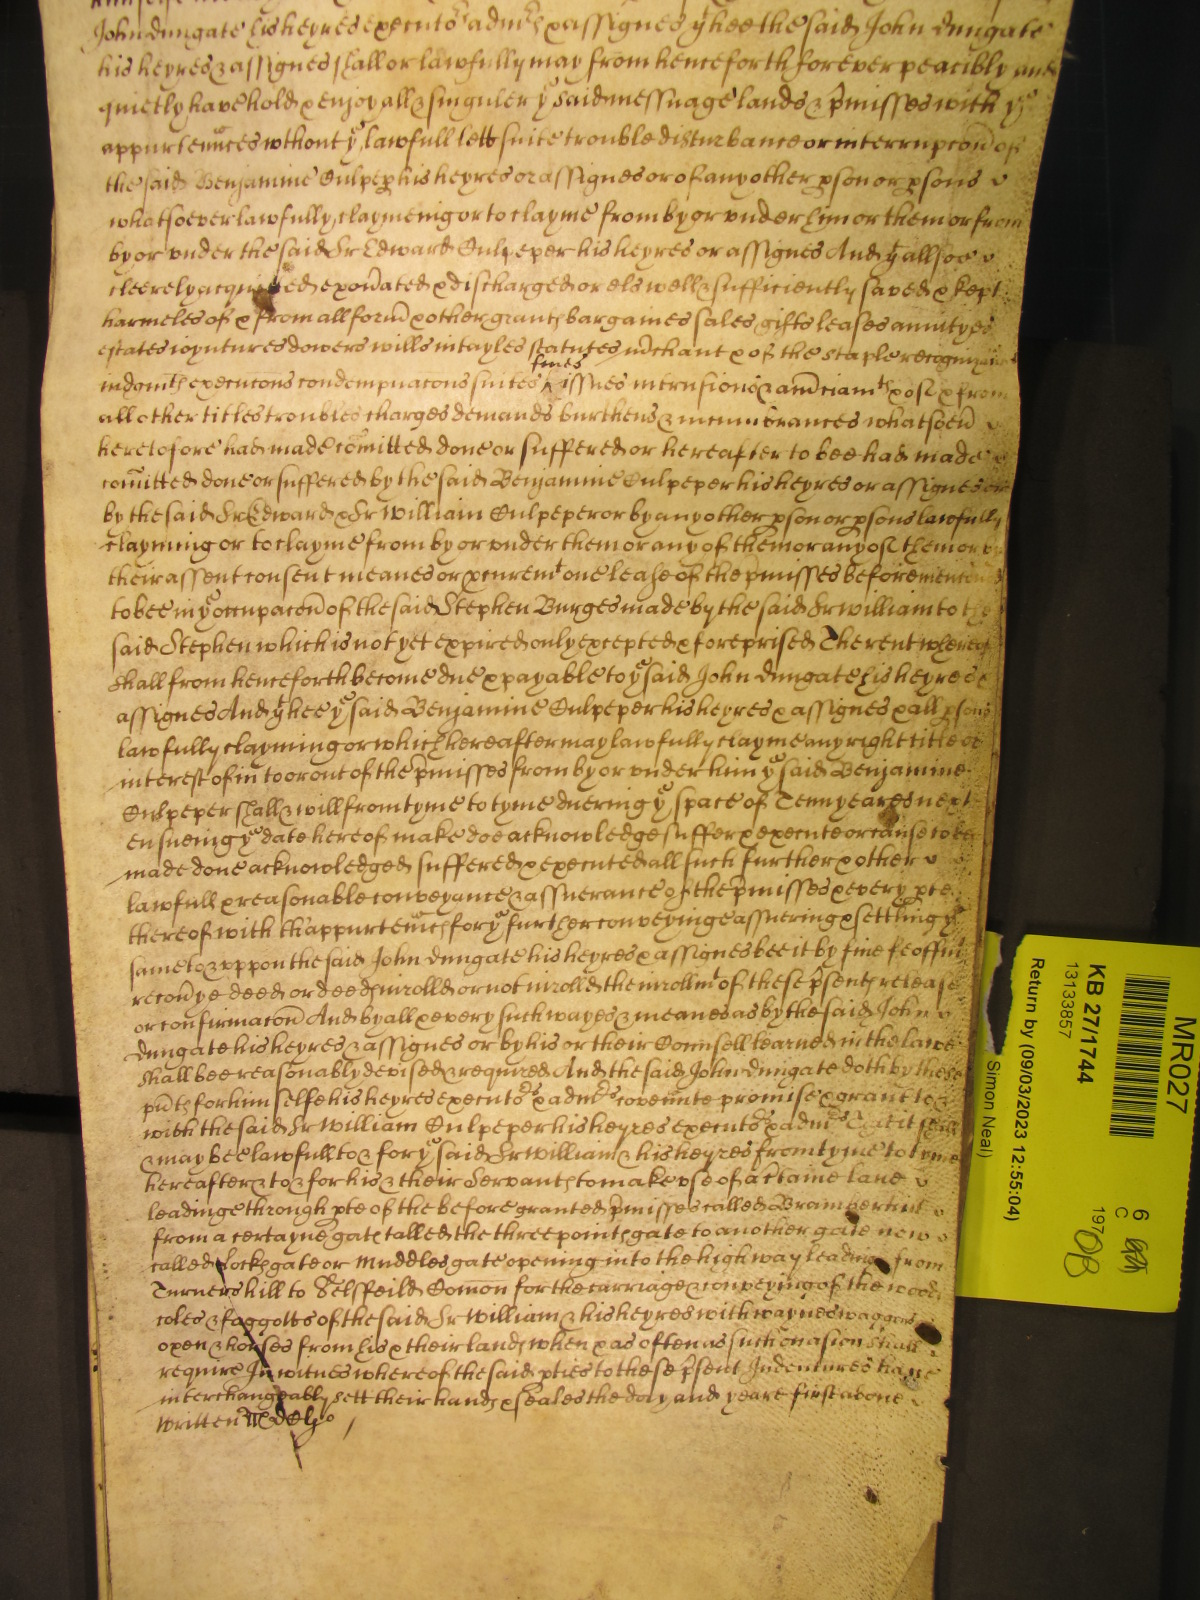 John dungate his heyres executors admrs & assignes yt hee the said John dungate
his heyres & assignes shall or lawfully may from henceforth forever peacibly and
quietly have hold & enjoy all & singuler ye said messuage lands & pmisses with ye
appurtennces wthout ye lawfull lett suite trouble disturbance or interrupcon of
the said Benjamine Culpeper his heyres or assignes or of any other pson or psons
whatsoever lawfully claymeing or to clayme from by or under him or them or from
by or under the said Sr Edward Culpeper his heyres or assignes And yt allsoe
cleerely acquitted exonated & discharged or els well & sufficiently saved & kept
harmeles of & from all form & other grants bargaines sales gifts leases anuityes
estates ioyntures dowers wills intayles statutes mchant & of the staple recognizan
iudgmts execucons condempnacons suites fines issues intrusions & amciamts & of & from
all other titles troubles charges demands burthens & incumbrances whatsoevr
heretofore had made comitted done or suffered or hereafter to bee had made
comitted done or suffered by the said Benjamine Culpeper his heyres or assignes or
by the said Sr Edward & Sr William Culpeper or by any other pson or psons lawfully
clayming or to clayme from by or under them or any of them or any of them or
their assent consent meanes or pcuremt one lease of the pmisses before mencon
to bee in ye occupacon of the said Stephen Burges made by the said Sr William to the
said Stephen which is not yet expired only excepted & foreprised The rent whereof
shall from henceforth become due & payable to ye said John dungate his heyres &
assignes And yt hee ye said Benjamine Culpeper his heyres & assignes & all psons
lawfully clayming or which hereafter may lawfully clayme any right title or
interest of in to or out of the pmisses from by or under him ye said Benjamine
Culpeper shall & will from tyme to tyme dureing ye space of Tenn yeares next
ensueing ye date hereof make doe acknowledge suffer & execute or cause to be
made done acknowledged suffered & executed all such further & other
lawfull & reasonable conveyance & assuerance of the pmisses & every pte
thereof with thappurtennces for ye further conveyinge assuering & settling ye
same to & uppon the said John dungate his heyres & assignes bee it by fine feoffmt
recovye deed or deeds inrolled or not inrolled the inrollmt of these psents release
or confirmacon And by all & every such wayes & meanes as by the said John
dungate his heyres & assignes or by his or their Counsell learned in the lawe
shall bee reasonably devised & required And the said John dungate doth by these
pnts for himselfe his heyres executors & admrs covennte promise & grant to &
with the said Sr William Culpeper his heyres executors & admrs That it shall
& may bee lawfull to & for ye said Sr William & his heyres from tyme to tyme
hereafter & to & for his & their Servants to make use of a certaine lane
leadinge through pte of the before granted pmisses called
from a certayne gate called the three points gate to another gate now
called Locks gate or Muddles gate opening into the high way leading from
Turners hill to Selsfeild Comon for the carriage & conveying of the wood
coles & faggotts of the said Sr William & his heyres with waynes waggons
oxen & horses from his & their lands when & as often as such occasion shall
require In witnes whereof the said pties to these psent Indentures have
interchangeably sett their hands & seales the day and yeare first above
written
MR027
KB 27/1744
13133857
Return by (09/03/2023 12:55:04)
Simon Neal)
6
C
197